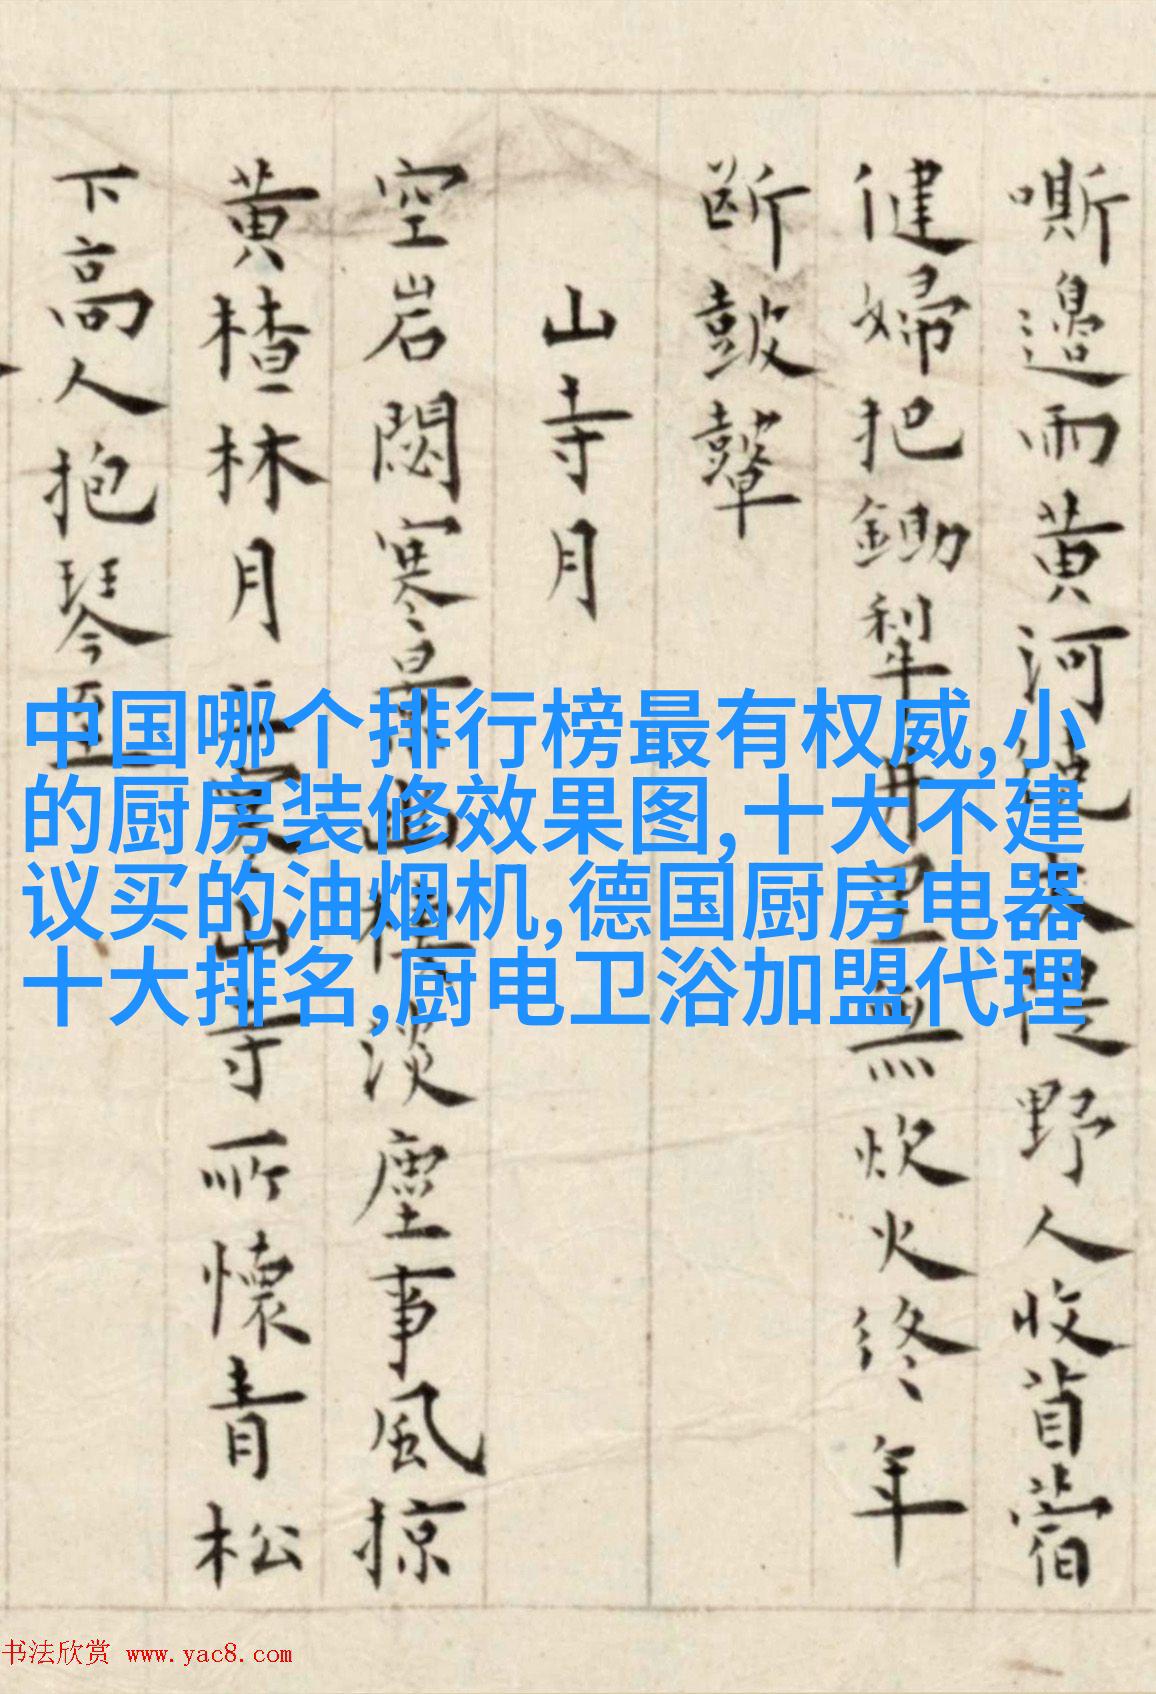 嘶邊雨黄河絶未是野人收苜蓿
健婦把鋤犁井里無炊火終年
断鼓鼙
山寺月
空岩閟寒景幽怪淡塵事風掠
黄楂林月照寒山寺所懷青松
下高人抱琴至
中国哪个排行榜最有权威,小
的厨房装修效果图,十大不建
议买的油烟机,德国厨房电器
十大排名,厨电卫浴加盟代理
书法欣赏 www.yac8.com